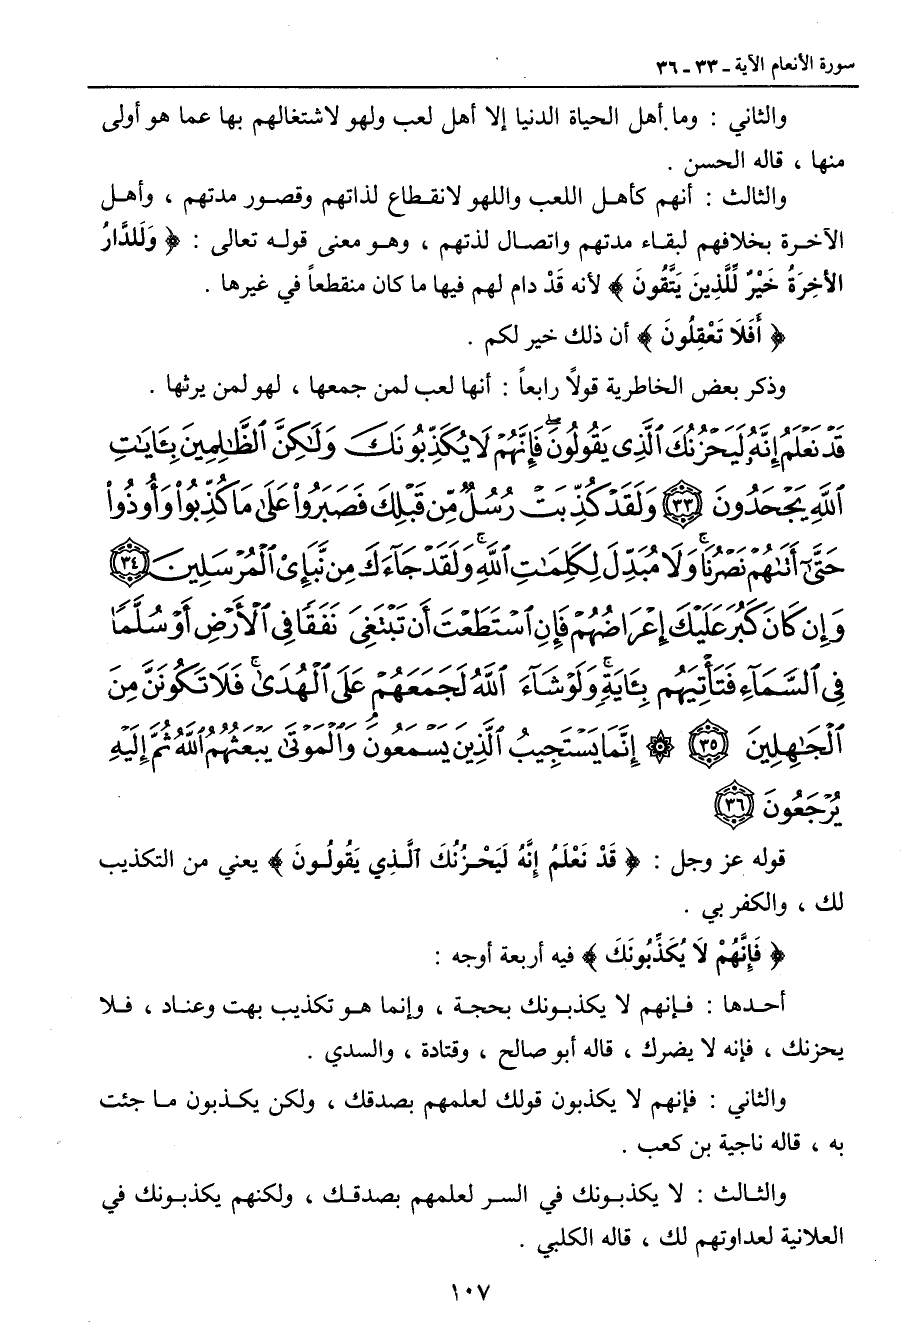 سورة الأنعام الآية ـ ٣٣ ـ ٣٦
والثاني : وما أهل الحياة الدنيا إلا أهل لعب ولهو لاشتغالهم بها عما هو أولى
منها ، قاله الحسن .
والثالث : أنهم كأهل اللعب واللهو لانقطاع لذاتهم وقصور مدتهم ، وأهل
الآخرة بخلافهم لبقاء مدتهم واتصال لذتهم ، وهو معنى قوله تعالى : ﴿ وَلَلدَّارُ
الأخِرَةُ خَيْرٌ لِّلَّذِينَ يَتَّقُونَ ﴾ لأنه قَدْ دام لهم فيها ما كان منقطعاً في غيرها .
﴿ أَفَلَا تَعْقِلُونَ ﴾ أن ذلك خير لكم .
وذكر بعض الخاطرية قولًا رابعاً : أنها لعب لمن جمعها ، لهو لمن يرثها .
قَدْ نَعْلَمُ إِنَّهُۥ لَيَحْزُنُكَ ٱلَّذِى يَقُولُونَۖ فَإِنَّهُمْ لَا يُكَذِّبُونَكَ وَلَٰكِنَّ ٱلظَّٰلِمِينَ بِـَٔايَٰتِ
ٱللَّهِ يَجْحَدُونَ ﴿٣٣﴾ وَلَقَدْ كُذِّبَتْ رُسُلٌ مِّن قَبْلِكَ فَصَبَرُوا۟ عَلَىٰ مَا كُذِّبُوا۟ وَأُوذُوا۟
حَتَّىٰٓ أَتَىٰهُمْ نَصْرُنَاۚ وَلَا مُبَدِّلَ لِكَلِمَٰتِ ٱللَّهِۚ وَلَقَدْ جَآءَكَ مِن نَّبَإِى۟ ٱلْمُرْسَلِينَ ﴿٣٤﴾
وَإِن كَانَ كَبُرَ عَلَيْكَ إِعْرَاضُهُمْ فَإِنِ ٱسْتَطَعْتَ أَن تَبْتَغِىَ نَفَقًا فِى ٱلْأَرْضِ أَوْ سُلَّمًا
فِى ٱلسَّمَآءِ فَتَأْتِيَهُم بِـَٔايَةٍۚ وَلَوْ شَآءَ ٱللَّهُ لَجَمَعَهُمْ عَلَى ٱلْهُدَىٰۚ فَلَا تَكُونَنَّ مِنَ
ٱلْجَٰهِلِينَ ﴿٣٥﴾ ۞ إِنَّمَا يَسْتَجِيبُ ٱلَّذِينَ يَسْمَعُونَۘ وَٱلْمَوْتَىٰ يَبْعَثُهُمُ ٱللَّهُ ثُمَّ إِلَيْهِ
يُرْجَعُونَ ﴿٣٦﴾
قوله عز وجل : ﴿ قَدْ نَعْلَمُ إِنَّهُ لَيَحْزُنُكَ الَّذِي يَقُولُونَ ﴾ يعني من التكذيب
لك ، والكفر بي .
﴿ فَإِنَّهُمْ لَا يُكَذِّبُونَكَ ﴾ فيه أربعة أوجه :
أحدها : فإنهم لا يكذبونك بحجة ، وإنما هو تكذيب بهت وعناد ، فلا
يحزنك ، فإنه لا يضرك ، قاله أبو صالح ، وقتادة ، والسدي .
والثاني : فإنهم لا يكذبون قولك لعلمهم بصدقك ، ولكن يكذبون ما جئت
به ، قاله ناجية بن كعب .
والثالث : لا يكذبونك في السر لعلمهم بصدقك ، ولكنهم يكذبونك في
العلانية لعداوتهم لك ، قاله الكلبي .
١٠٧